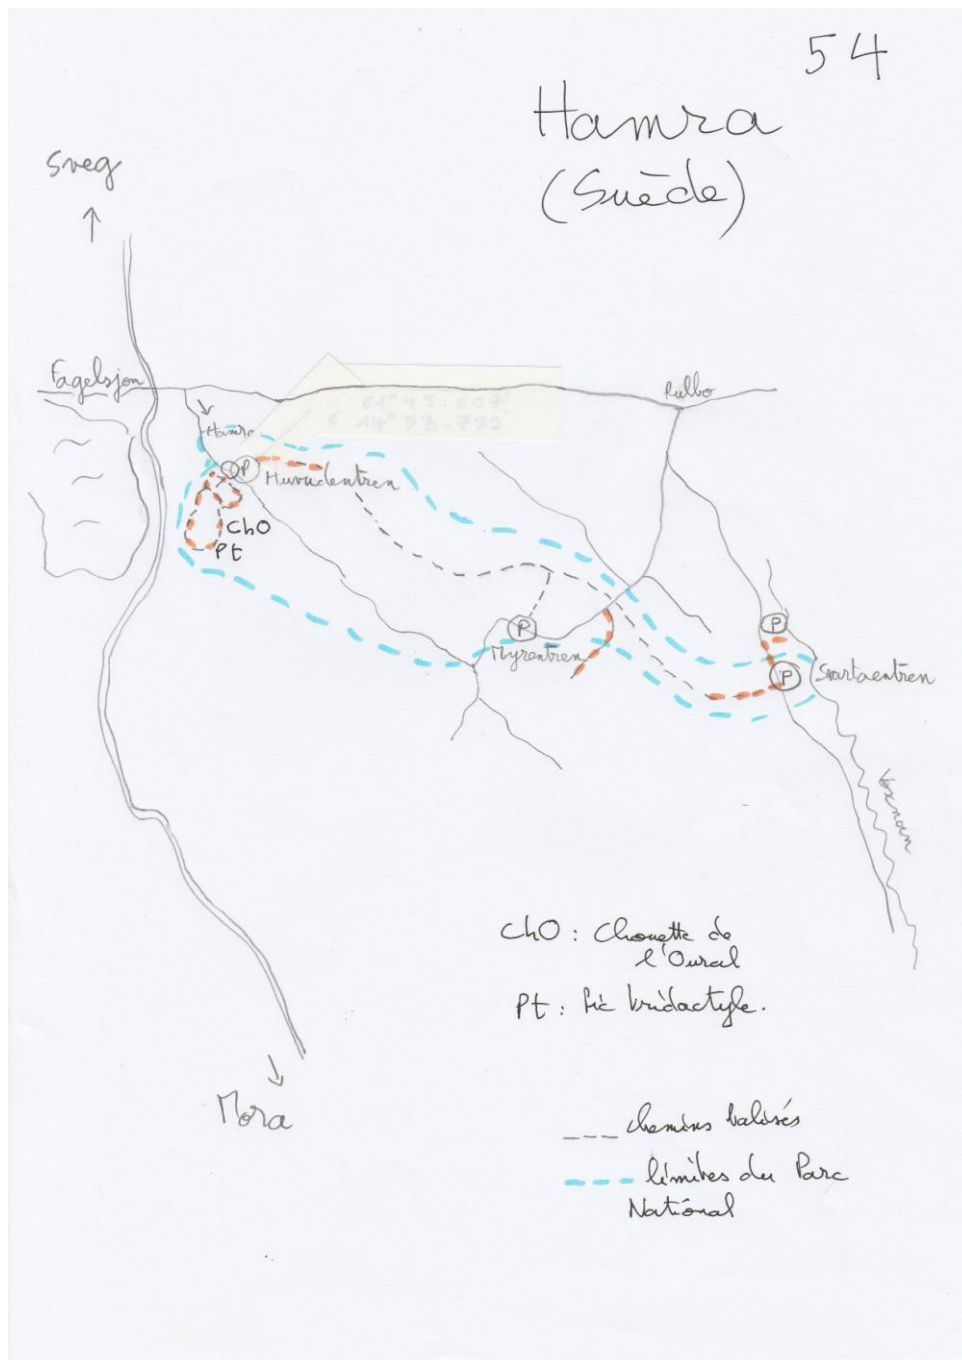 54
Hamra
(Suède)
Sveg
Fagelsjon
Rullbo
61° 45.607'
E 14°
Hamra
P
Huvudentren
ChO
Pt
P
Myrentren
P
P
Svartaentren
Voxnan
ChO : Chouette de
l'Oural
Pt : Pic tridactyle.
Mora
chemins balisés
limites du Parc
National